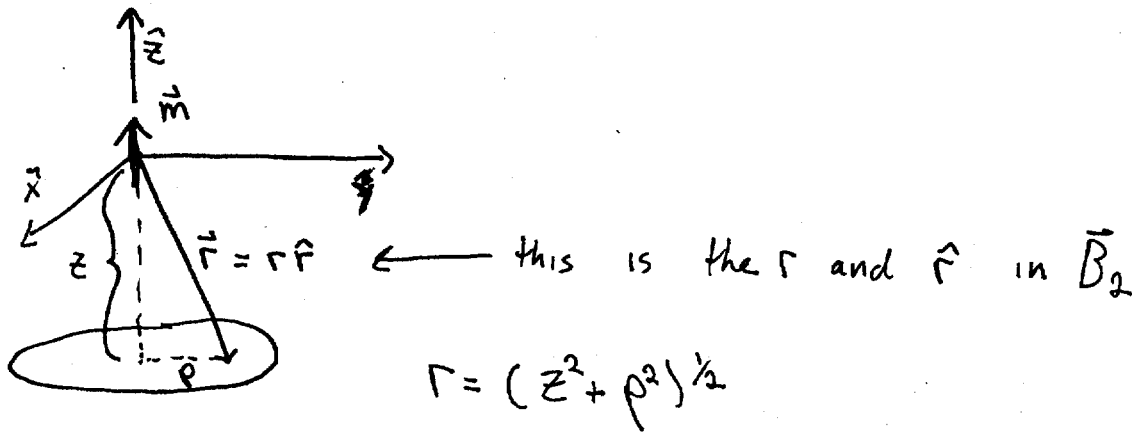 ẑ
m⃗
x⃗
z
r⃗ = r r̂ ← this is the r and r̂ in B⃗₂
ρ
r = (z² + ρ²)^½